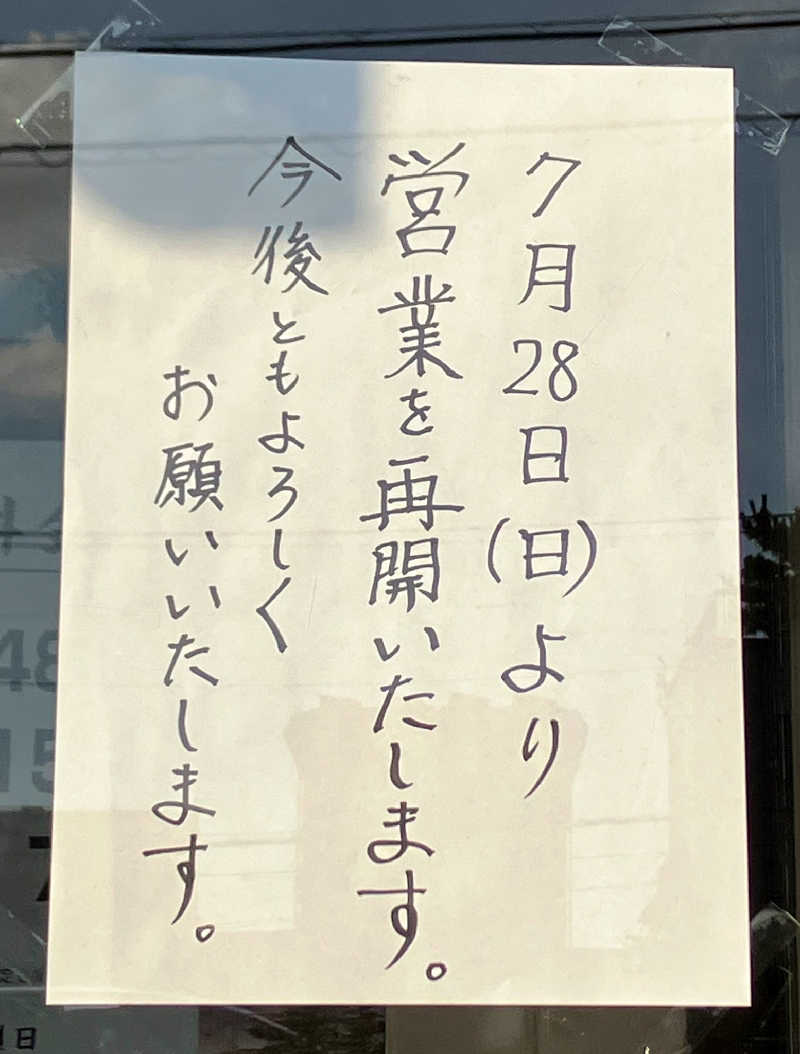 7月28日(日)より
営業を再開いたします。
今後ともよろしく
お願いいたします。
48
15
日